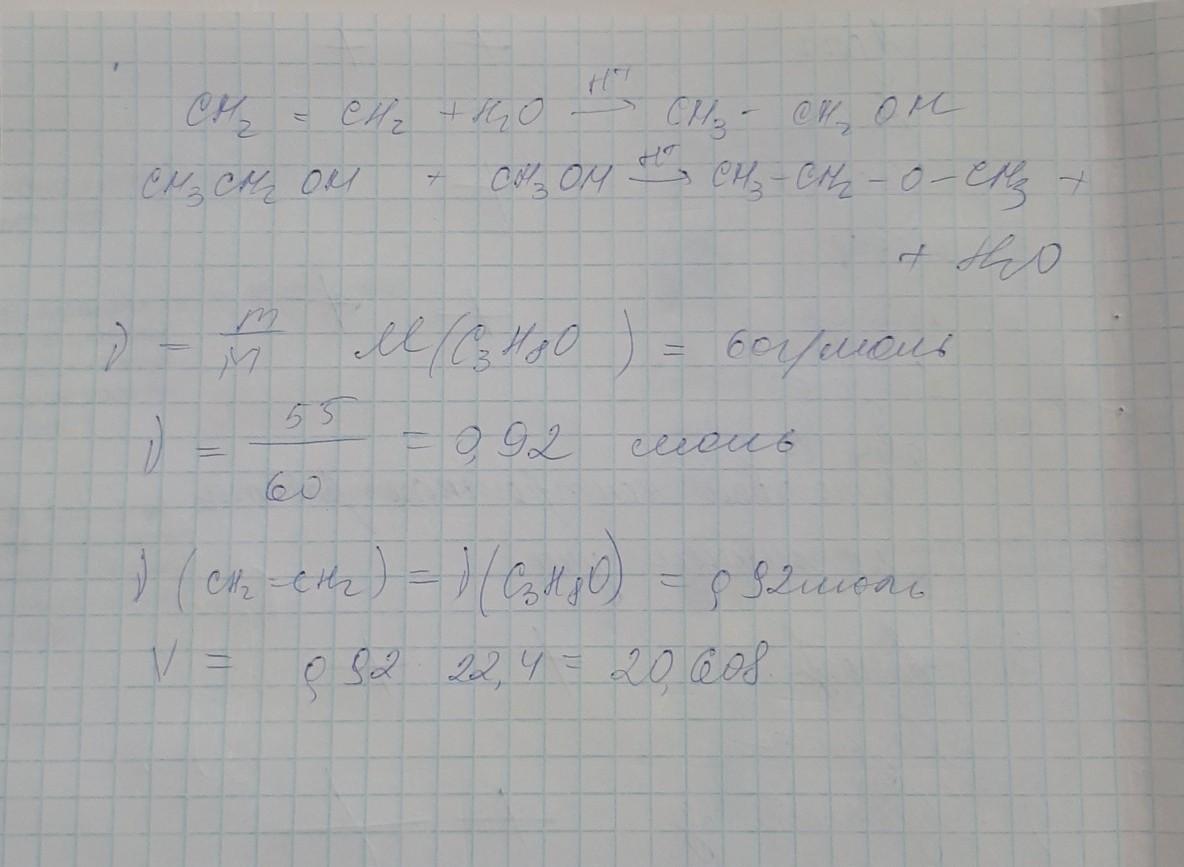 CH₂ = CH₂ + H₂O →(H⁺) CH₃ - CH₂ OH
CH₃CH₂ OH + CH₃OH →(H⁺) CH₃-CH₂-O-CH₃ +
+ H₂O
ν = m/M M(C₃H₈O) = 60 г/моль
ν = 55/60 = 0,92 моль
ν (CH₂=CH₂) = ν(C₃H₈O) = 0,92 моль
V = 0,92 22,4 = 20,608